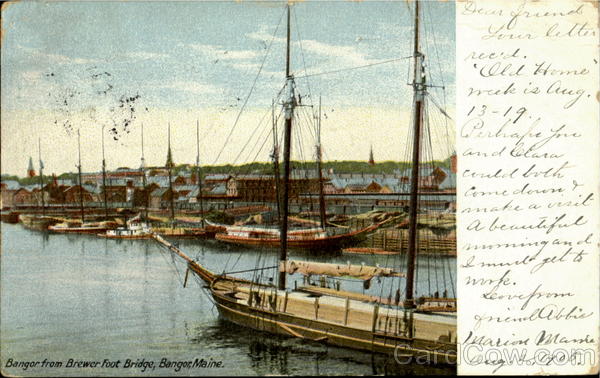 Dear friend
Your letter
rec'd.
"Old Home"
week is Aug.
13-19.
Perhaps you
and Clara
could both
come down &
make a visit
A beautiful
morning and
I must get to
work.
Love from
friend Abbie
Marion
Aug.
Bangor from Brewer Foot Bridge, Bangor, Maine.
CardCow.com